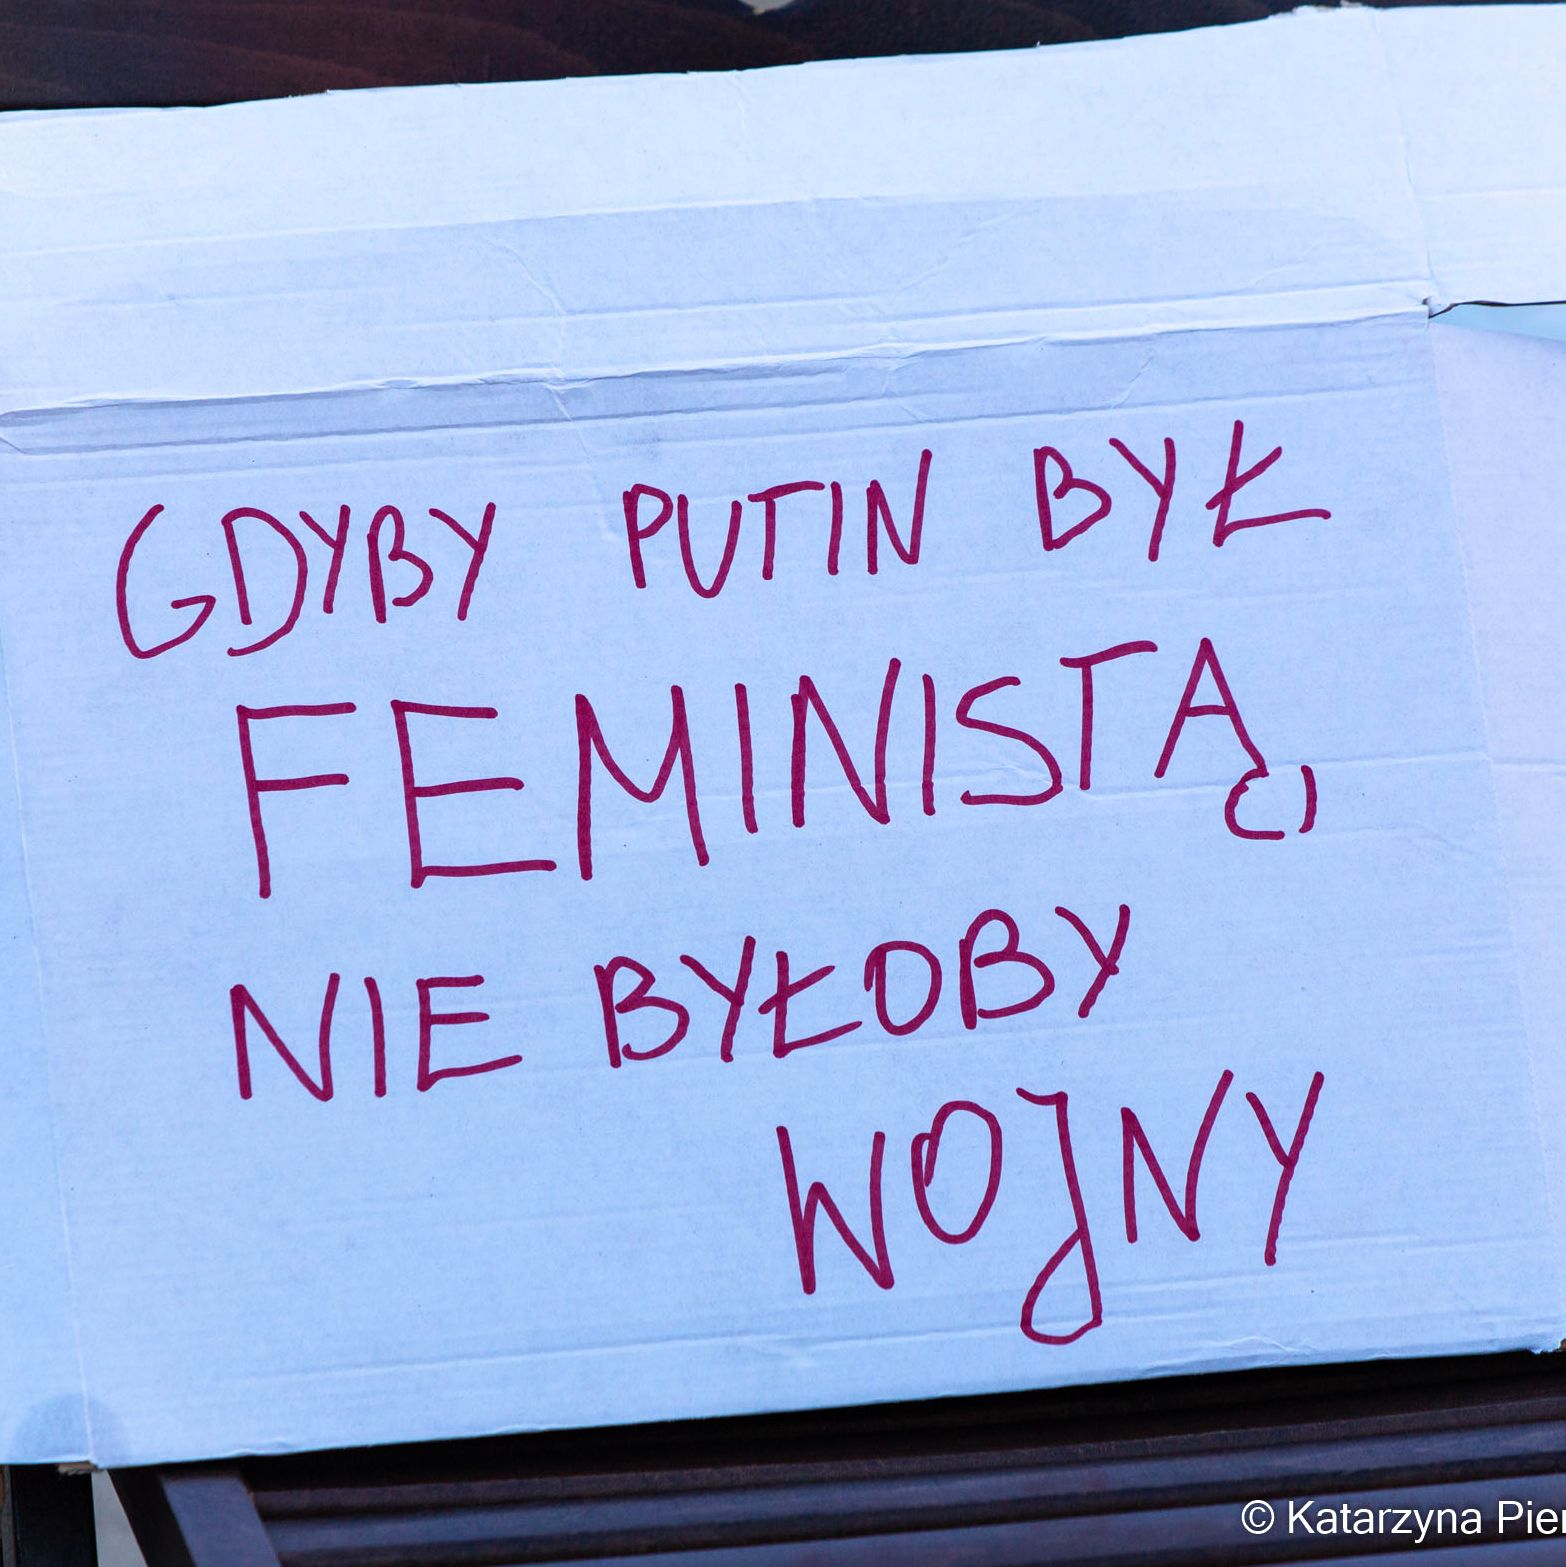 GDYBY PUTIN BYŁ
FEMINISTĄ,
NIE BYŁOBY
WOJNY
© Katarzyna